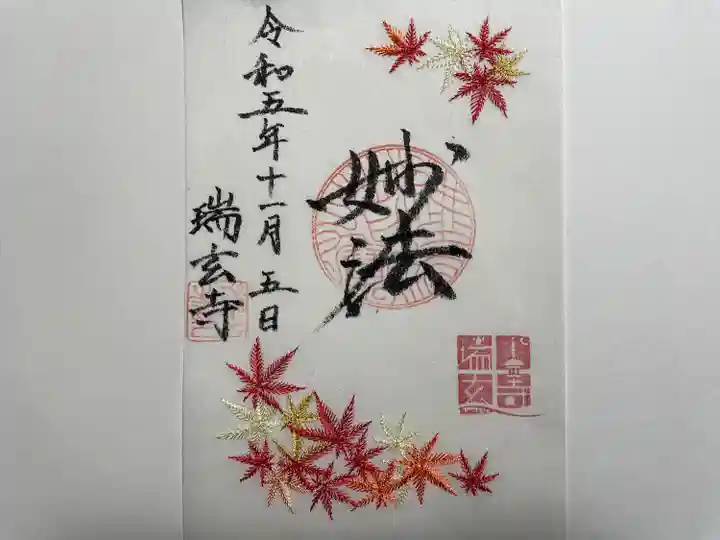 妙法
令和五年十一月五日
瑞玄寺
瑞玄